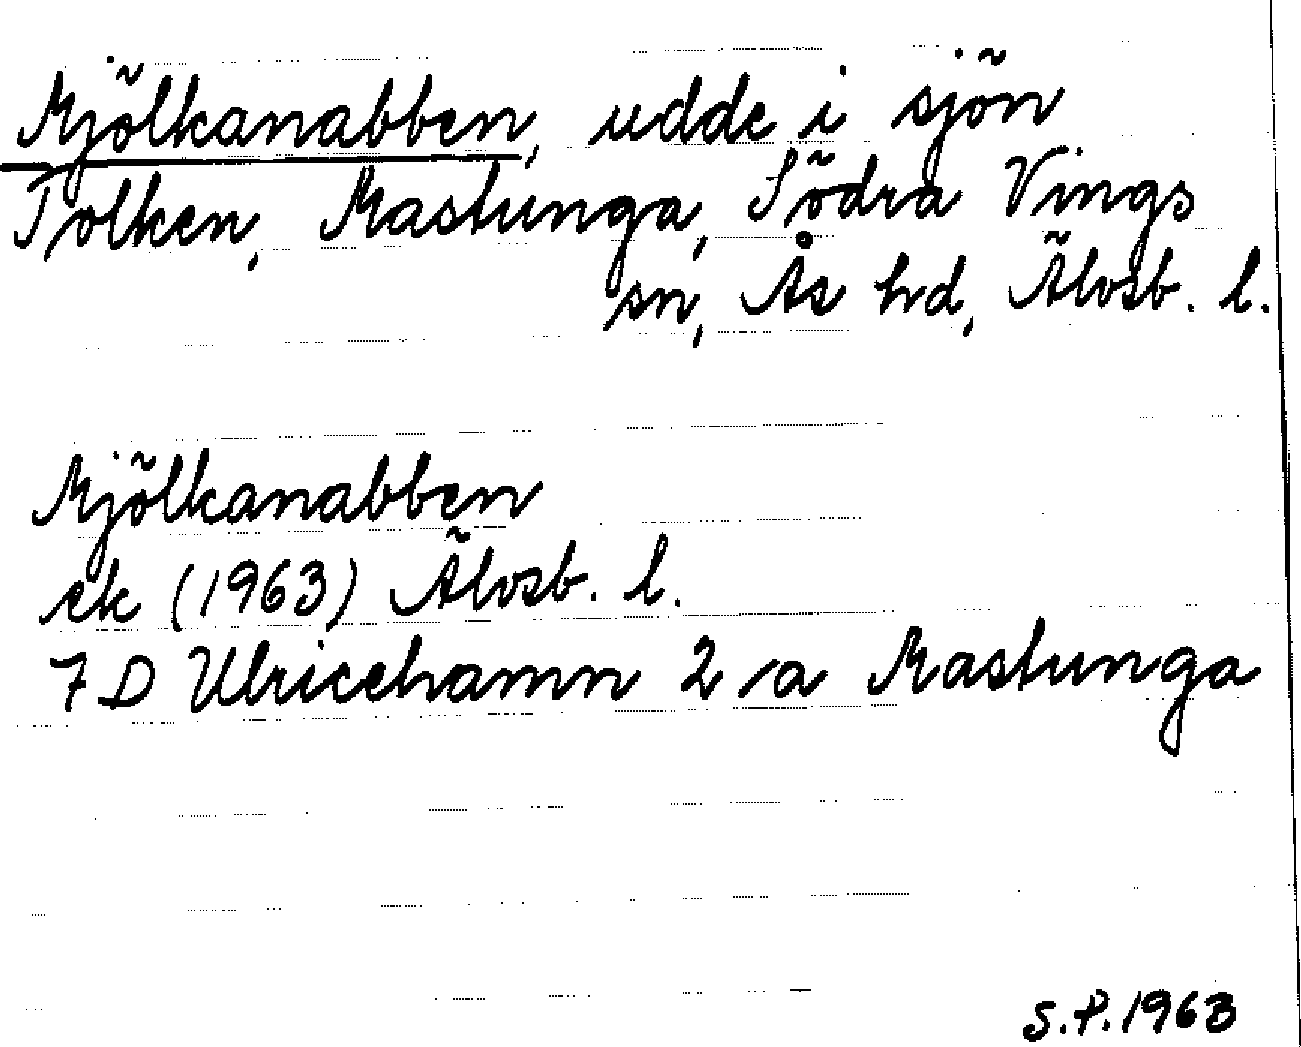 Mjölkanabben, udde i sjön
Tolken, Mastunga, Södra Vings
sn, Ås hd, Älvsb. l.
Mjölkanabben
ek (1963) Älvsb. l.
7 D Ulricehamn 2 a Mastunga
S.P. 1963